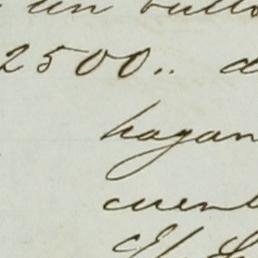 un bulto
2500.. d
hagan
cuent